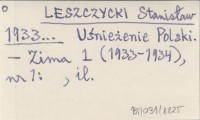 LESZCZYCKI Stanisław
1933... Uśnieżenie Polski.
- Zima 1 (1933-1934),
nr 1: , il.